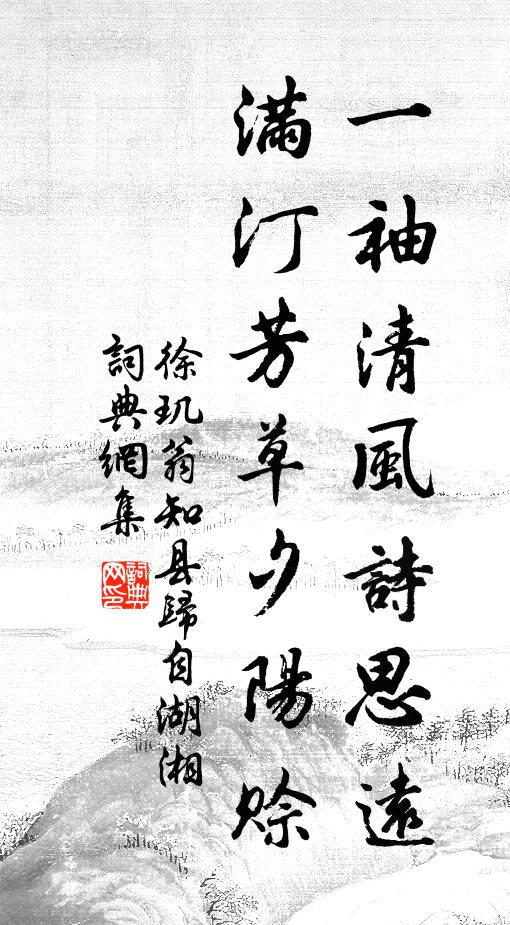 一袖清風詩思遠
滿汀芳草夕陽賒
徐玑翁知县歸自湖湘
詞典網集
詞典网印